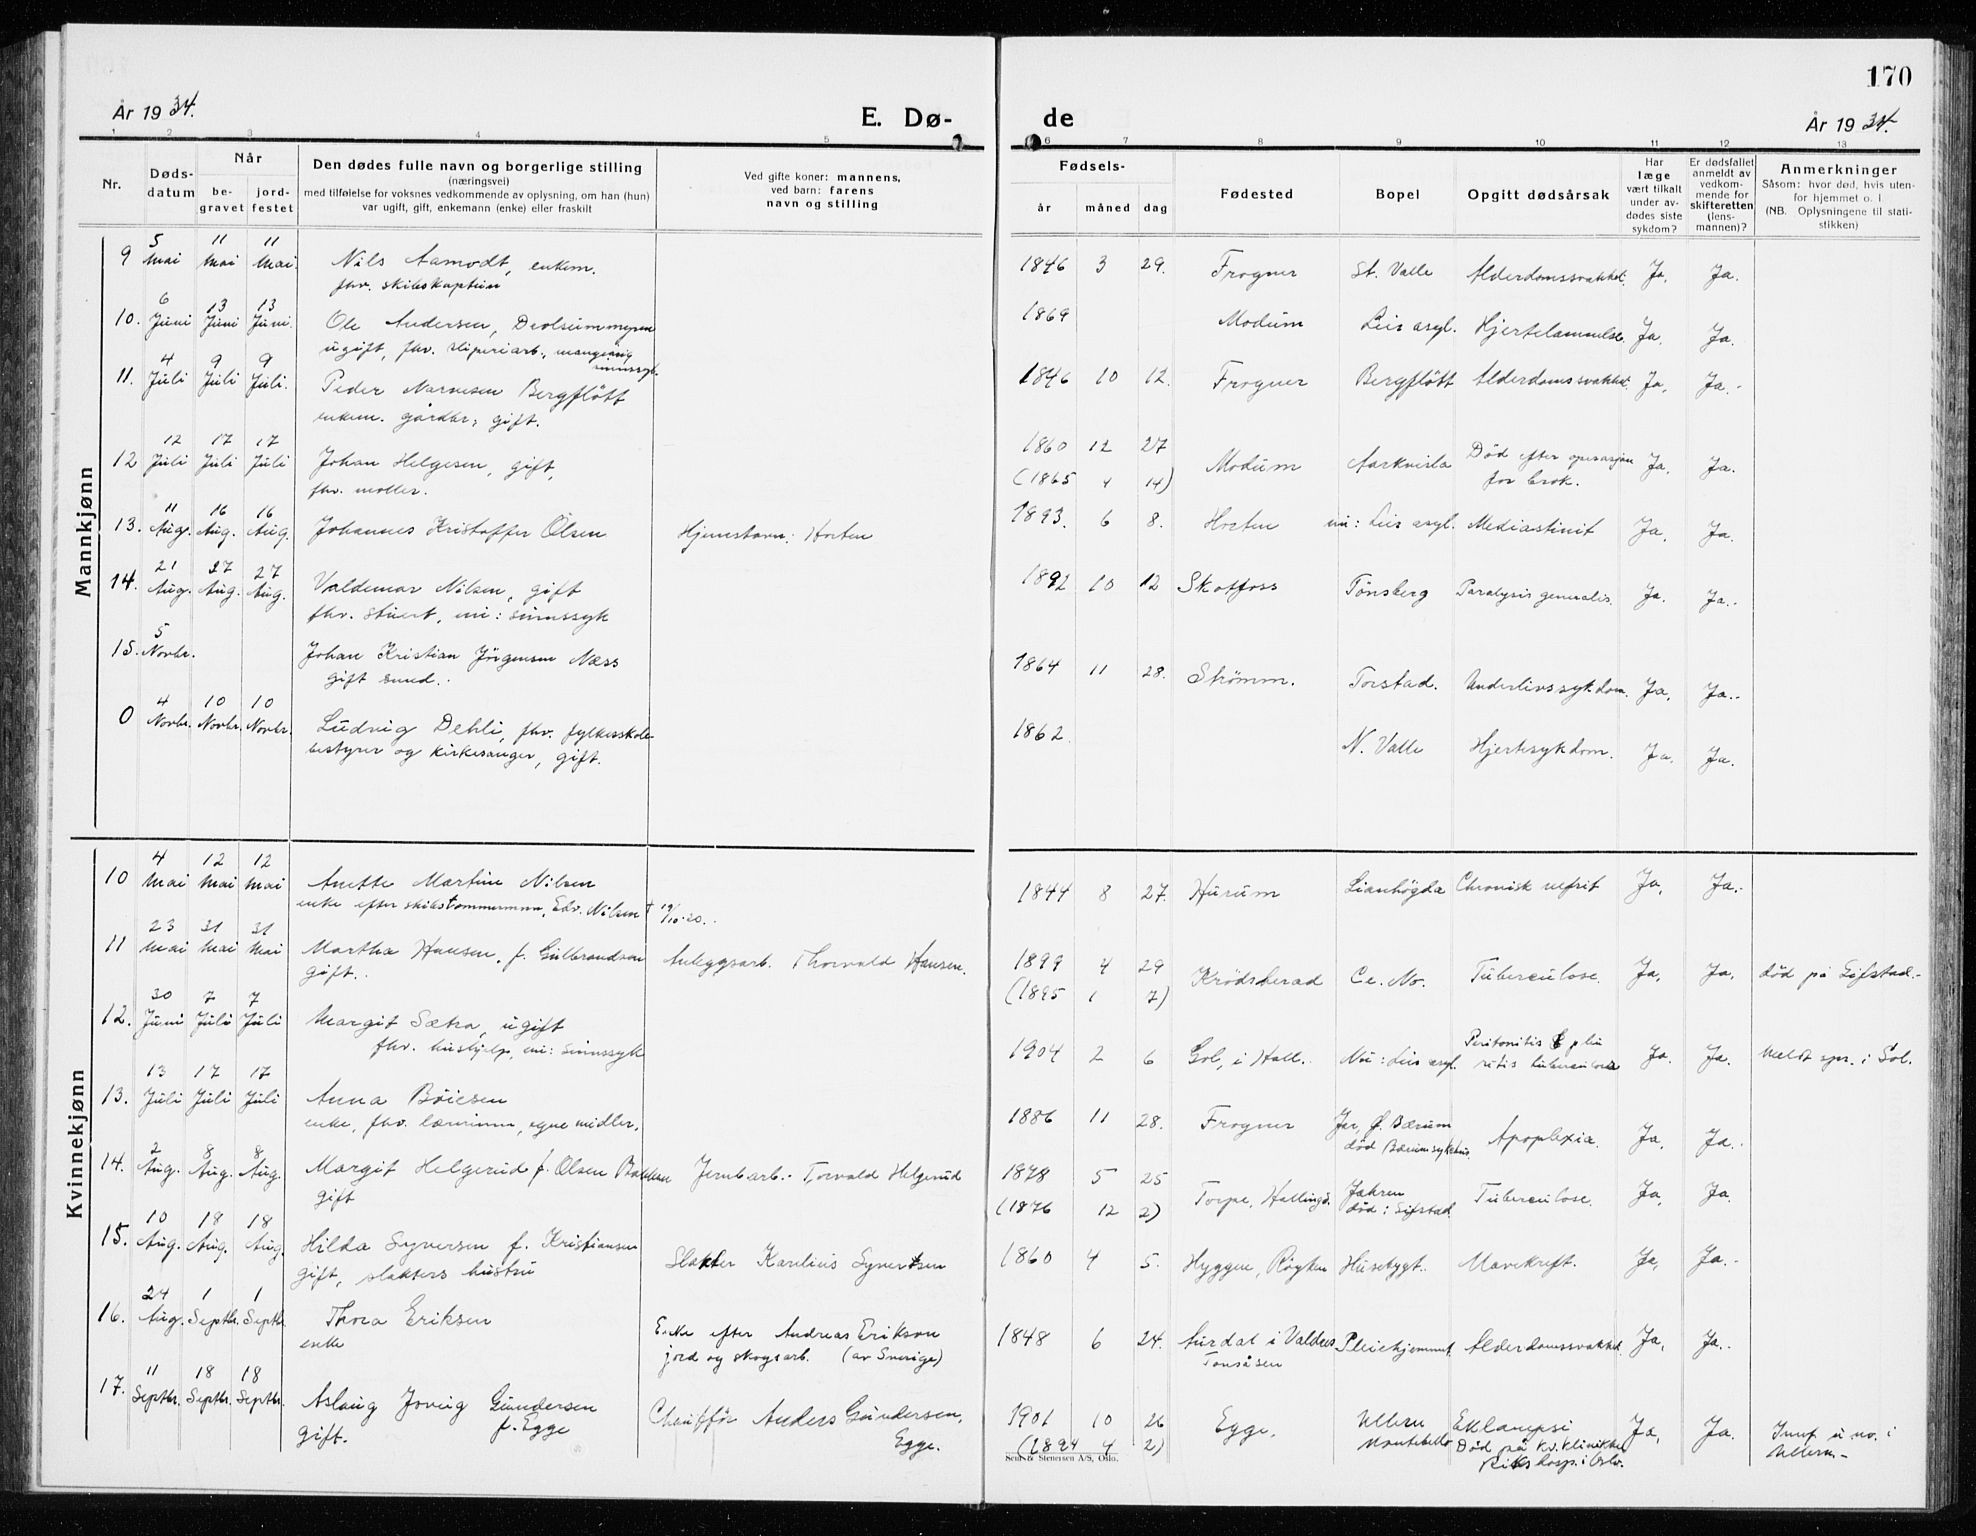 170
År 1934.
E. Dø-
de
År 1934.
1 2 3 4 5 6 7 8 9 10 11 12 13
Nr.
Døds-
datum
Når
be-
gravet
jord-
festet
Den dødes fulle navn og borgerlige stilling
(næringsvei)
med tilføielse for voksnes vedkommende av oplysning, om han (hun)
var ugift, gift, enkemann (enke) eller fraskilt
Ved gifte koner: mannens,
ved barn: farens
navn og stilling
Fødsels-
år måned dag
Fødested
Bopel
Opgitt dødsårsak
Har
læge
vært tilkalt
under av-
dødes siste
sykdom?
Er dødsfallet
anmeldt av
vedkom-
mende for
skifteretten
(lens-
mannen)?
Anmerkninger
Såsom: hvor død, hvis uten-
for hjemmet o. l.
(NB. Oplysningene til stati-
stikken)
Mannkjønn
9 5 Mai 11 Mai 11 Mai. Nils Aamodt, enkem. 1846 3 29. Frogner St. Valle Alderdomssvakhet. Ja, Ja.
fhv. skibskaptein
10. 6 Juni 13 Juni 13 Juni. Ole Andersen, 1869 Modum Lier asyl. Hjertelammelse. Ja. Ja.
ugift, fhv. sliperiarb., mangeårig
sinnssyk.
11. 4 Juli 9 Juli 9 Juli. Peder Narvesen Bergfløtt 1846 10 12. Frogner Bergfløtt Alderdomssvakhet. Ja, Ja.-
enkem. gårdbr., gift.
12 12 Juli 17 Juli 17 Juli Johan Helgesen, gift, 1860 12 27 Modum Aarkvisla Død efter operasjon Ja, Ja.
fhv. møller. (1865 4 14) for brok.
13. 11 Aug. 16 Aug. 16 Aug. Johannes Kristoffer Olsen Hjemstavn: Horten 1893. 6 8. Horten nu: Lier asyl. Mediastinit Ja, Ja.
14. 21 Aug. 27 Aug. 27 Aug. Valdemar Nilsen, gift 1892 10 12 Skotfoss Tønsberg Paralysis generalis. Ja. Ja..
fhv. stuert, nu: sinnssyk
15. 5 Novbr. Johan Kristian Jörgensen Næss 1864 11 28. Strømm. Torstad. Underlivssykdom. Ja, Ja..
gift smed..
0 4 Novbr. 10 Novbr. 10 Novbr. Ludvig Dehli, fhv. fylkesskole- 1862. N. Valle Hjertesykdom. Ja. Ja.
bestyrer og kirkesanger, gift.
Kvinnekjønn
10 4 Mai 12 Mai 12 Mai Anette Martine Nilsen 1844 8 27. Hurum Lianhögda Chronisk nefrit Ja, Ja.-
enke efter skibstømmermann, Edv. Nilsen † 19/10-20..
11 23 Mai 31 Mai 31 Mai Martha Hansen, f. Gulbrandsen Anleggsarb. Thorvald Hansen. 1899 4 29 Krödsherad Ce. No. Tuberculose. Ja, Ja, død på Sifstad.-
gift.. (1895 1 7)
12. 30 Juni 7 Juli 7 Juli Margit Sætra, ugift 1904 2 6 Gol, i Hall.. Nu: Lier asyl. Peritonitis & pleu Ja. Ja. Meldt spr. i Gol.
fhv. hushjelp, nu: sinnssyk ritis tuberculosa
13. 13 Juli 17 Juli 17 Juli Anna Böiesen 1886 11 28. Frogner Jar, Ø. Bærum Apoplexia. Ja, Ja.
enke, fhv. lærerinne, egne midler. død Bærum sykehus.
14. 2 Aug. 8 Aug. 8 Aug. Margit Helgerud f. Olsen Bakken Jernbarb.- Torvald Helgerud 1878 5 25 Torpe, Hallingd. Jahren Tuberculose. Ja, Ja.
gift (1876 12 2) død: Sifstad.
15. 10 Aug. 18 Aug. 18 Aug. Hilda Syversen f. Kristiansen Slakter Karelius Syvertsen 1860 4 5. Hyggen, Röyken Husebygt.. Mavekreft. Ja, Ja.-
gift, slakters hustru
16. 24 Aug. 1 Septbr. 1 Septbr. Thora Eriksen Enke efter Andreas Erikson 1848 6 24. Aurdal i Valdres Pleiehjemmet. Alderdomssvakhet. Ja, Ja..
enke jord og skogsarb. (av Sverige) Tonsåsen
17. 11 Septbr. 18 Septbr. 18 Septbr. Aslaug Joveig Gundersen Chauffør Anders Gundersen, 1901 10 26 Egge. Ullern Eklampsi Ja, Ja. Innf. u no. i
gift. f. Egge Egge. (1894 4 2) Montebello Død på kv.klinikken Ullern.-
Rikshosp. i Oslo.
Sem & Stenersen A/S, Oslo.